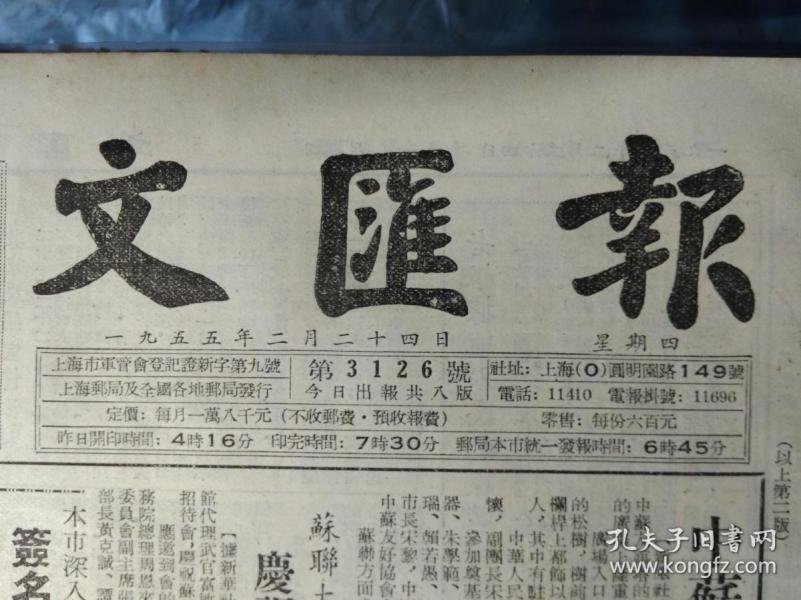 文匯報
一九五五年二月二十四日 星期四
上海市軍管會登記證新字第九號
上海郵局及全國各地郵局發行
第3126號
今日出報共八版
社址：上海(0)圓明園路149號
電話：11410 電報掛號：11696
定價：每月一萬八千元（不收郵費·預收報費） 零售：每份六百元
昨日開印時間：4時16分 印完時間：7時30分 郵局本市統一發報時間：6時45分
（以上第二版）
中蘇
廣場入口
的松樹，樹前
欄桿上都飾以
人，其中有駐
中華人民
懷，副團長宋
參加奠基
器、朱學範、
瑞、賴若愚、
市長宋黎，中
中蘇友好協會
蘇聯方面
蘇聯大
慶
【據新華社
館代理武官富
招待會，慶祝蘇
應邀到會的
務院總理周恩來
委員會副主席張
部長黃克誠、譚
本市深入
簽名
孔夫子旧书网
KONGFZ.COM